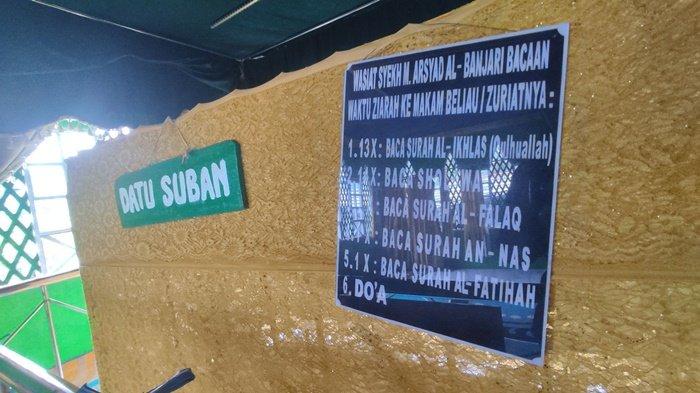 DATU SUBAN
WASIAT SYEKH M. ARSYAD AL - BANJARI BACAAN
WAKTU ZIARAH KE MAKAM BELIAU / ZURIATNYA :
1. 13 X : BACA SURAH AL - IKHLAS (Qulhuallah)
BACA
BACA SURAH AL - FALAQ
X : BACA SURAH AN - NAS
5. 1 X : BACA SURAH AL- FATIHAH
6. DO'A